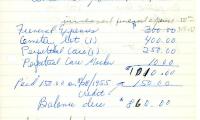 increased funeral expenses
Funeral Expenses $ 360.00
Cemetery Lot (1) 400.00
Perpetual Care (1) 250.00
Perpetual Care Marker 10.00
$ 1010.00
Paid 150.00 on 1955 - 150.00
credit
Balance due $ 860.00